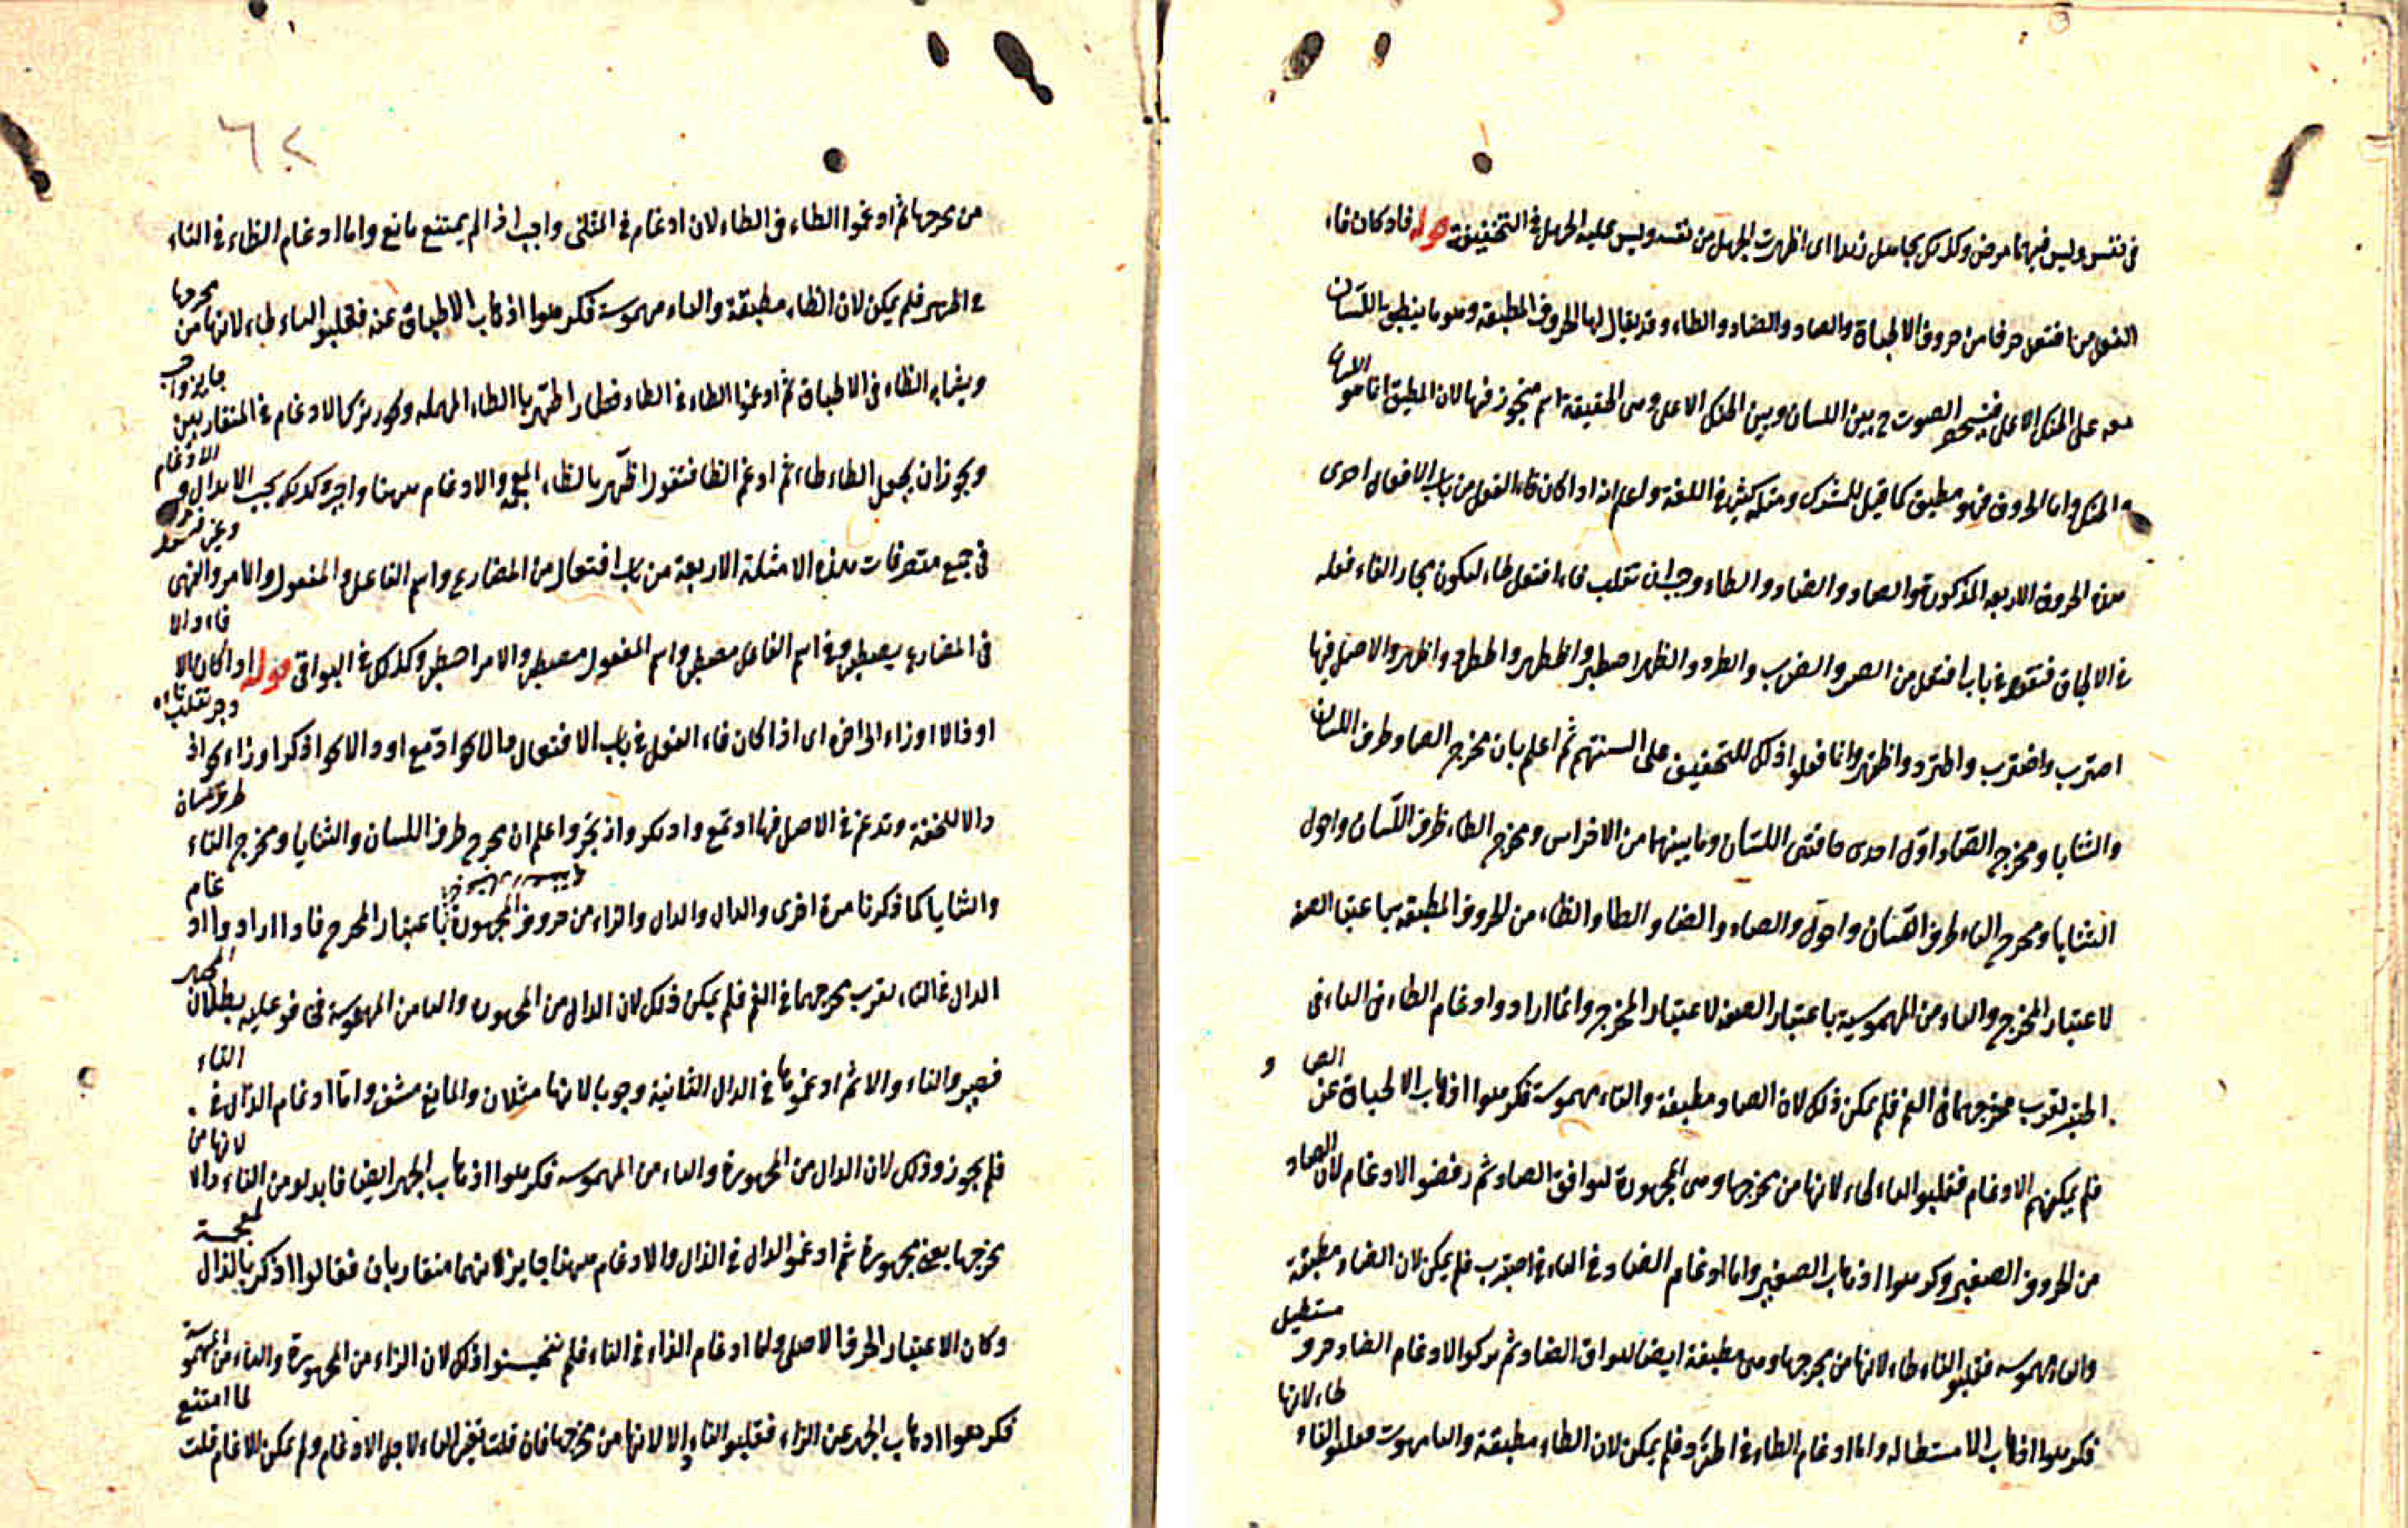 في نفس وليس فيها مرض وكذلك تجاهل زيدا اى اظهرت الجهل من نفسه وليس عليه الجهل في التحقيق قوله فاذ كان فاء
الفعل من افتعل حرفا من حروف الاطباق والصاد والضاد والطاء وقد يقال لها الحروف المطبقة وهو ما ينطبق اللسان
معه على الحنك الاعلى فينحصر الصوت ح بين اللسان وبين الحنك الاعلى وهى الحقيقة اسم متجوز فيها لان المطبق انما هو اللسان
والحنك واما الحروف فهو مطبق كما قيل للمشترك ومثله كثير في اللغة واعلم انه اذا كان فاء الفعل من باب الافتعال احدى
هذه الحروف الاربعه المذكورة والصاد والضاد والطاء وجب ان تقلب تاء افتعل طاء ليكون بجار الفاء فعله
في الاطباق فتقول في باب افتعل من الصبر والضرب والطرد والظهر اصطبر واضطهر واطرد واظهر والاصل فيها
اصترب واضترب واطترد واظتهر وانما فعلوا ذلك للتحقيق على السنتهم ثم اعلم بان مخرج الصاد طرف اللسان
والثنايا ومخرج الضاد اول احدى حافتى اللسان وما بينهما من الاضراس ومخرج الطاء طرف اللسان واصول
الثنايا ومخرج التاء طرف اللسان واصول والصاد والضاد والطا والظاء من الحروف المطبقه باعتبار الصفه
لا عتبار المخرج والتاء من المهموسية باعتبار الصفه لا عتبار المخرج وانما ارادوا ادغام الطاء في التاء في
اطتبر لقرب مخرجهما في الفم فلم يمكن ذلك لان الصاد مطبقة والتاء مهموسة فكرهوا اذهاب الاطباق عن الصاد و
فلم يمكنهم الادغام فقلبوا التاء طاء لانها من مخرجها وهى المجهورة ليوافق الصاد ثم رفضوا الادغام لان الصاد
من الحروف الصفير وكرهوا اذهاب الصفير واما ادغام الضاد في التاء في اضترب فلم يمكن لان الضاد مطبقة
والتاء مهموسه فقلبوا التاء طاء لانها من مخرجها وهى مطبقة ايضا ليوافق الضاد ثم تركوا الادغام الضاد حرف مستطيل
فكرهوا اذهاب الاستطاله واما ادغام الطاء في اطترد فلم يمكن لان الطاء مطبقة والتا مهموسة فقلبوا التاء طاء لانها
٦٢
من مخرجها ثم ادغموا الطاء في الطاء لان ادغام في المثلين واجب اذ لم يمتنع مانع واما ادغام الظاء في التاء
في اظتهر فلم يمكن لان الظاء مطبقة والتاء مهموسة فكرهوا اذهاب الاطباق عنه فقلبوا التاء طاء لانها من مخرجها
ويشابه الظاء في الاطباق ثم ادغموا الظاء في الطاء فصار اطهر بالطاء المهمله ويجوز تركه الادغام في المتقاربين جايز واجب
ويجوز ان يجعل الطاء ظاء ثم ادغم الظا فتقول اظهر بالظاء المعجمه والادغام ههنا واجب وكذلك يجب الابدال والادغام
في جميع متصرفات هذه الامثلة الاربعة من باب افتعال من المضارع واسم الفاعل والمفعول والامر والنهى وغير فتقول
في المضارع يصطبر وفي اسم الفاعل مصطبر واسم المفعول مصطبر والامر اصطبر وكذلك في البواقى قوله اذا كان فاءه دالا
او ذالا او زاء الى اخره اى اذا كان فاء الفعل في باب الافتعال دالا نحو ادمع او ذالا نحو اذكر او زاء نحو ازد وجب تقلب تاءه
دالا للخفة وتدغم في الاصل فيها ادتمع واذتكر وازتجر واعلم ان مخرج طرف اللسان والثنايا ومخرج التاء طرف اللسان
والثنايا كما ذكرنا مرة اخرى والدال والذال والزاء من حروف المجهورة باعتبار المخرج فاذا ارادوا ادغام
الدال في التاء لقرب مخرجهما في الفم فلم يمكن ذلك لان الدال من المجهوره والتا من المهموسة في قوعليه بطلان الجهر
فصير والتاء دالا ثم ادغموها في الدال الثانية وجوبا لانها مثلان والمانع منتف واما ادغام الذال في التاء
فلم يجوز وذلك لان الدال من المجهورة والتاء من المهموسه فكرهوا اذهاب الجهر ايضا فابدلو من التاء دالا لانها من
مخرجها يعنى مجهورة ثم ادغموا الدال في الذال والادغام ههنا جايز لانهما متقاربان فقالوا اذكر بالذال المعجمة
وكان الاعتبار الحرف الاصلى واما ادغام الزاء في التاء فلم يستحسنوا ذلك لان الزاء من المجهورة والتاء من المهموسة
فكرهوا اذهاب الجهر عن الزاء فقلبوا التاء دالا لانها من مخرجها فان قلت تغير التاء لاجل الادغام ولم يمكن الادغام قلت لما امتنع